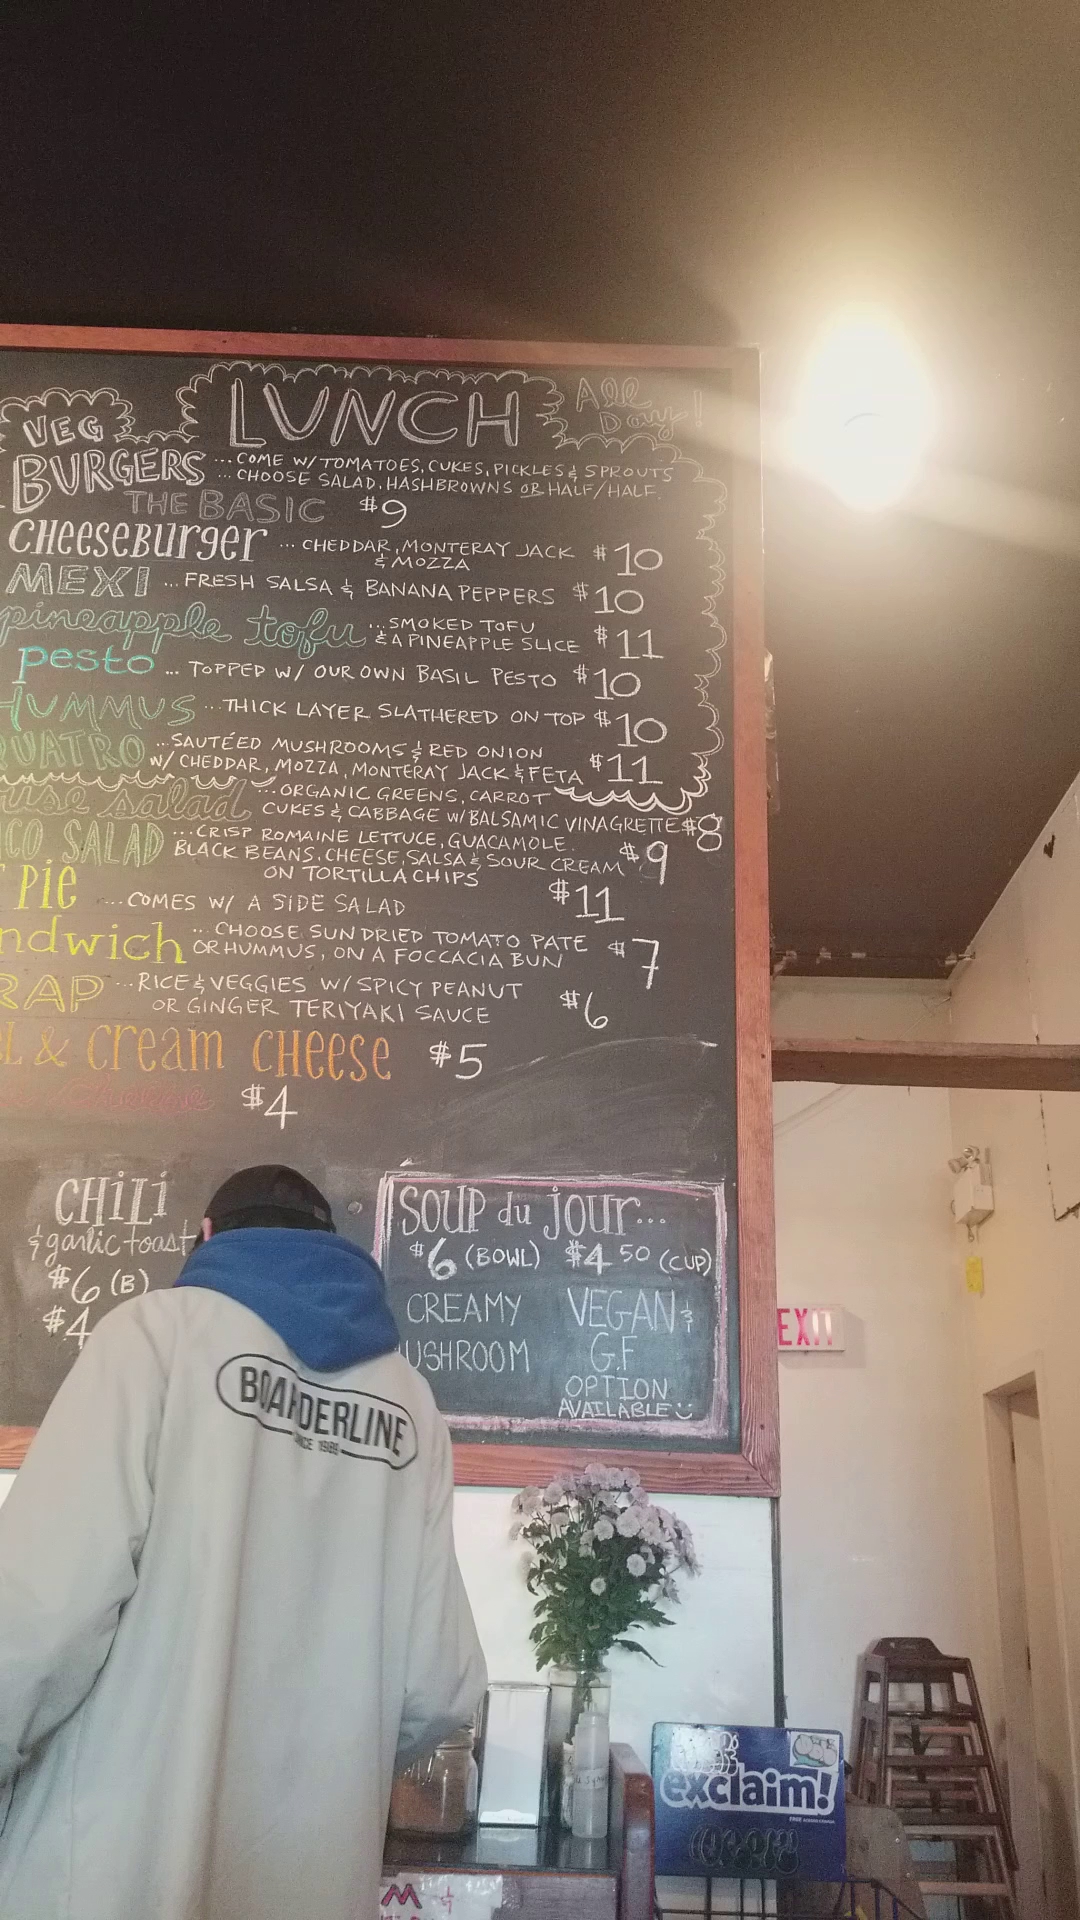 LUNCH All Day!
VEG
BURGERS ...COME W/ TOMATOES, CUKES, PICKLES & SPROUTS
...CHOOSE SALAD, HASHBROWNS OR HALF/HALF.
THE BASIC $9
CHEESEBURGER ... CHEDDAR, MONTERAY JACK & MOZZA $10
MEXI ...FRESH SALSA & BANANA PEPPERS $10
pineapple tofu ...SMOKED TOFU
& A PINEAPPLE SLICE $11
pesto ... TOPPED W/ OUR OWN BASIL PESTO $10
HUMMUS ...THICK LAYER SLATHERED ON TOP $10
QUATRO ...SAUTÉED MUSHROOMS & RED ONION
W/ CHEDDAR, MOZZA, MONTERAY JACK & FETA $11
salad ...ORGANIC GREENS, CARROT
CUKES & CABBAGE W/ BALSAMIC VINAGRETTE $8
CO SALAD ...CRISP ROMAINE LETTUCE, GUACAMOLE.
BLACK BEANS, CHEESE, SALSA & SOUR CREAM $9
ON TORTILLA CHIPS
PIE ...COMES W/ A SIDE SALAD $11
ndwich ...CHOOSE SUN DRIED TOMATO PATE
OR HUMMUS, ON A FOCCACIA BUN $7
RAP ...RICE & VEGGIES W/ SPICY PEANUT
OR GINGER TERIYAKI SAUCE $6
L & CREAM CHEESE $5
cheese $4
CHILI
& garlic toast
$6 (B)
$4
SOUP du jour...
$6 (BOWL) $4.50 (CUP)
CREAMY
USHROOM
VEGAN &
G.F
OPTION
AVAILABLE
BOARDERLINE
SINCE 1989
EXIT
exclaim!